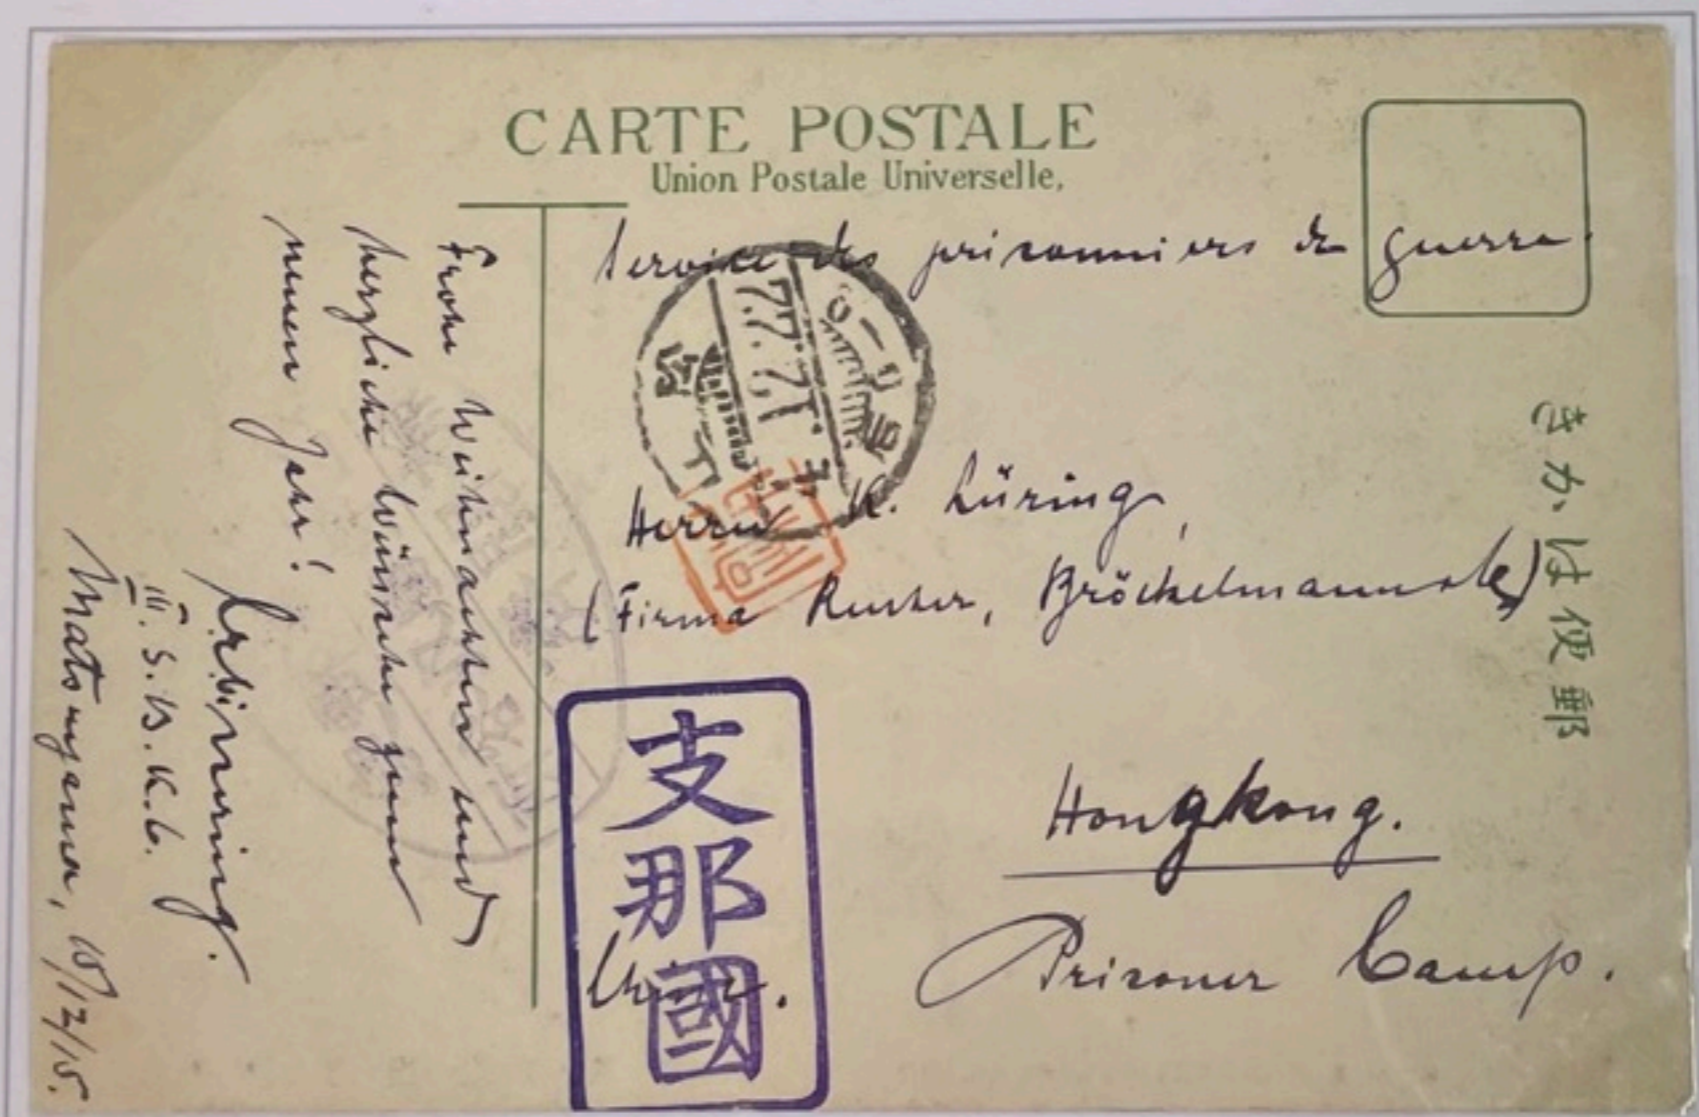 CARTE POSTALE
Union Postale Universelle.
Service des prisonniers de guerre.
Herrn K. Lüring,
(Firma Reuter, Bröckelmann & Co)
Hongkong.
Prisoner Camp.
China.
支那國
郵便はかき
Frohe Weihnachten und
herzliche Wünsche zum
neuen Jahr!
III. S. B. K. 6.
Matsuyama, 10/12/15.